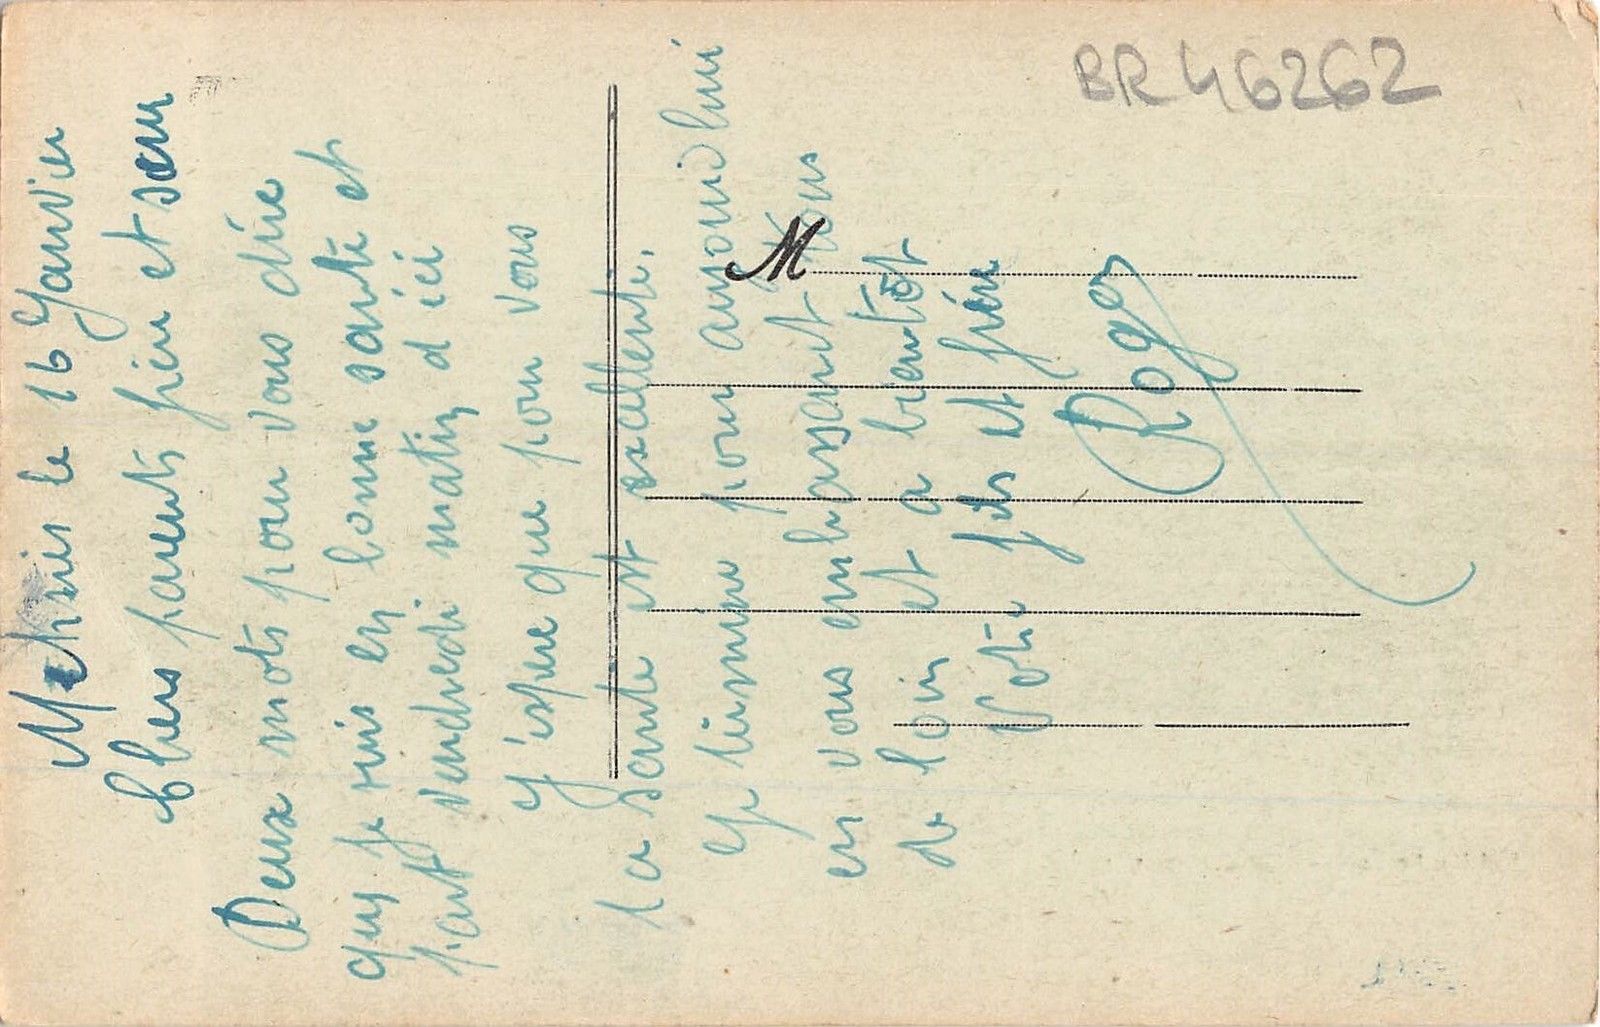 le 16 Janvier
Chers parents frère et sœur
Deux mots pour vous dire
que je suis en bonne santé et
part vendredi matin d ici
J'espère que pour vous
la santé est excellente.
Je termine pour aujourd'hui
en vous embrassant tous
de loin et a bientôt
Votre fils et frère
Roger
M
BR 46262